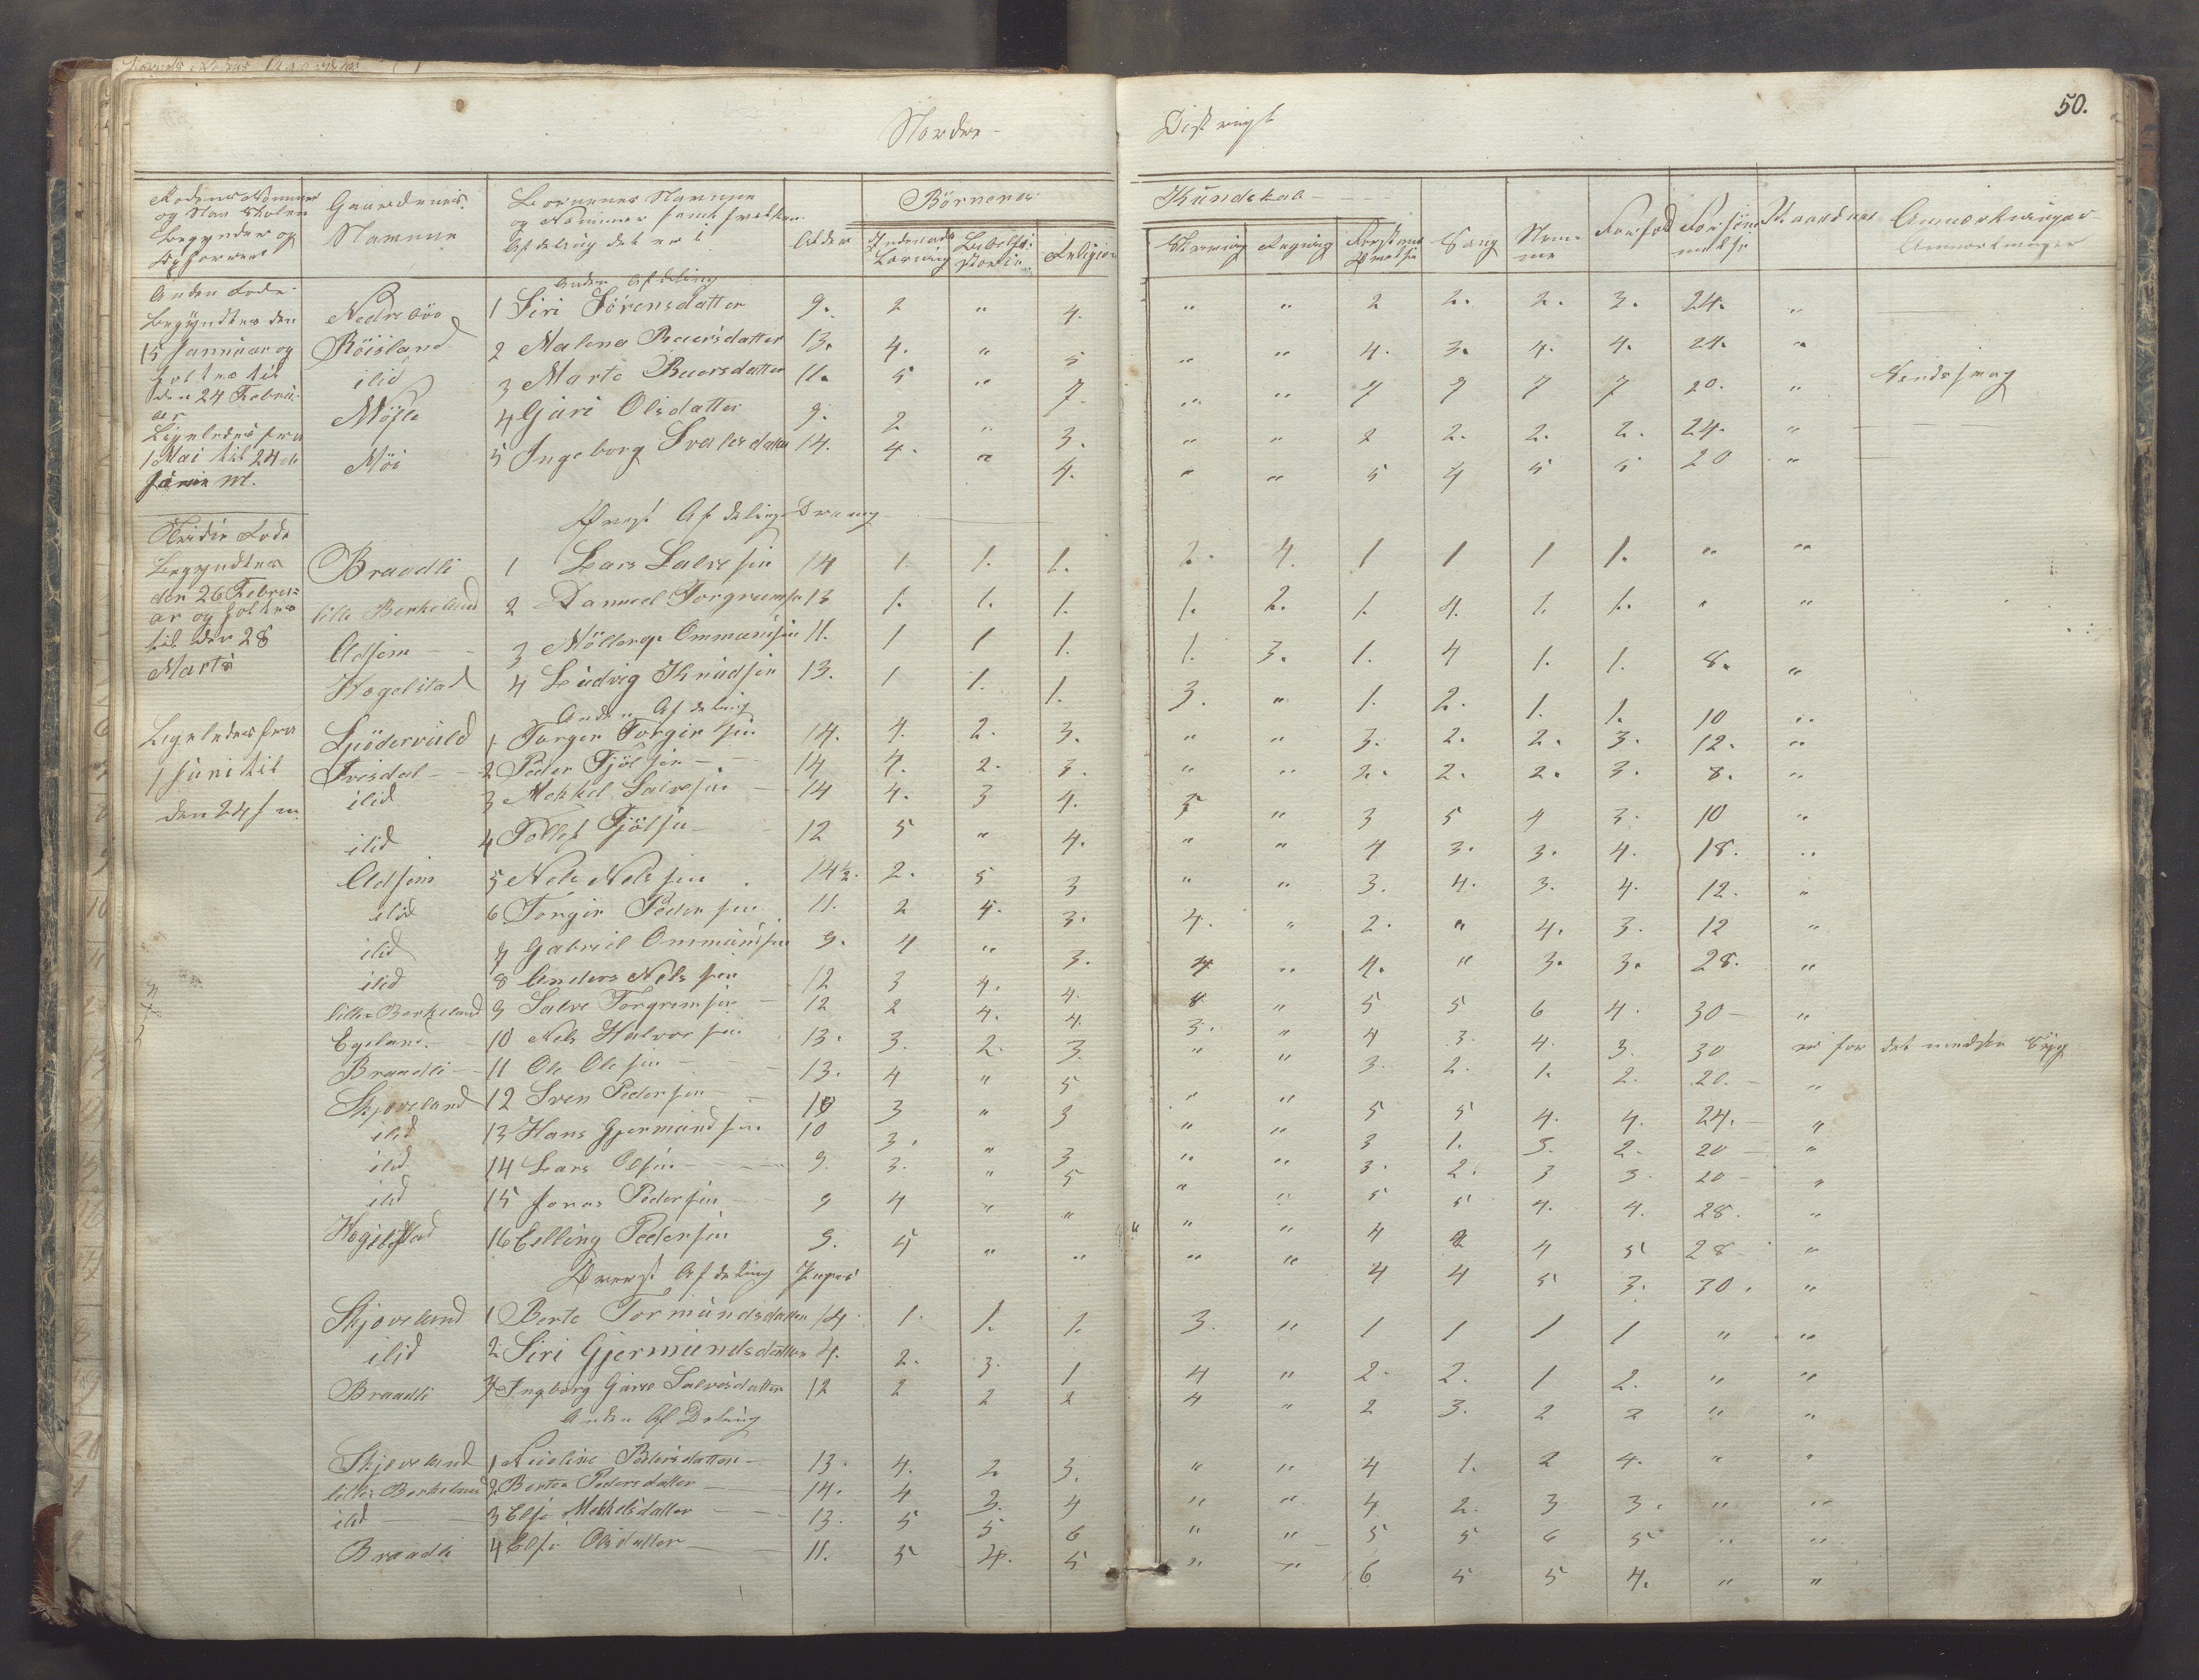 50.
Nordre - Distrigt
Rodens Nommer og Naar Skolen Begynder og Ophørrer | Gaardenes Namne | Børnenes Namne og Nommer samt hvilken Afdeling det er i | Alder | Børnenes Kundskab | Religion | Skrivning | Regning | Sang | Nemme | Forhold | Forsømmelse | Anmærkninger
Anden Rode
Begyndtes den
15 Januar og
holtes til
den 24 Febru
ar
Ligeledes fra
1 Mai til 24 de
Anden Afdeling
Nedrebøe 1 Siri Sørensdatter 9. 2 " 4. " " 2 2. 2. 3. 24. "
Röisland 2 Malena Raersdatter 13. 4. " 5 " " 4. 3. 4. 4. 24. "
ilid 3 Marte Raersdatter 11. 5 " 7. " " 7 7 7 7 20. "
4 Guri Olsdatter 9. 2 " 3. " " 2 2. 2. 2. 24. "
Möi 5 Ingeborg Svalesdatter 14. 4. " 4. " " 5 4 5 5 20 "
Øverst Afdeling Dreng
Tredie Rode
Begyndtes
den 26 Febru=
ar og holtes
til den 28
Marts
Braadli 1 Lars Salvesen 14 1. 1. 1. 2. 4. 1 1 1 1. " "
lille Berkeland 2 Danueel Torgrimsen 13 1. 1. 1. 1. 2. 1. 4. 1. 1. " "
Adsem 3 Möllerop Ommundsen 11. 1 1 1. 1. 3. 1. 4 1. 1. 8. "
Hegelstad 4 Ludvig Knudsen 13. 1 1. 1. 3. " 1. 2. 1. 1. 10 "
Anden Afdeling
Ligeledes fra
1 Juni til
den 24 s m.
1 Torger Torgersen 14. 4. 2. 3. " " 3. 2. 2. 3. 12. "
Ivesdal 2 Peder Tjölsen 14 4. 2. 3. " " 2. 2. 2. 3. 8. "
ilid 3 Mekkel Salvesen 14 4. 3 4. 3 " 3 5 4 3. 10 "
ilid 4 Tollef Tjölsen 12 5 " 4. " " 4 3. 3. 4. 18. "
Adsem 5 Nels Nelssen 14½. 2. 5 3 " " 3. 4. 3. 4. 12. "
ilid 6 Torger Pedersen 11. 2 4. 3. 4. " 2. " 4. 3. 12 "
ilid 7 Gabriel Ommundsen 9. 4 " 3. 4 " 4. " 3. 3. 28. "
ilid 8 Anders Nelssen 12 3 4. 4. 8 " 5 5 6 4. 30 "
lille Berkeland 9 Salve Torgrimsen 12 2 4. 4. 3. " 4 3. 4. 3. 30 er for det medste Syg
Egeland 10 Nels Halvorsen 13. 3. 2. 3. " " 3. 2. 1. 2. 20. "
Braadli 11 Ole Olesen 13. 4 " 5 " " 5 5 4. 4. 24. "
Skjoveland 12 Sven Pedersen 10 3 " 3 " " 3 1. 3. 2. 20 "
ilid 13 Hans Gjermundsen 10 3. " 3 " " 3. 2. 3 3. 20 "
ilid 14 Lars Olsen 9. 3. " 5 " " 5 5 4. 4. 28. "
ilid 15 Jonas Pedersen 9 4 " " " " 4 4 4 5 28 "
Hegelstad 16 Elling Pedersen 9. 5 " " " " 4 4 5 3. 30. "
Øverst Afdeling Piger
Skjoveland 1 Berte Tormundsdatter 14 1. 1. 1. 3. " 1 1 1 1 " "
ilid 2 Siri Gjermundsdatter 2. 3. 1 4 " 2. 2. 1 2. " "
Braadli 3 Ingborg Gurie Salvesdatter 12 2 2 2 4 " 2 3. 2 2 " "
Anden Af Deling
Skjoveland 1 Pedersdatter 13. 4. 2. 3. " " 4 1. 2 4. " "
lille Berkeland 2 Bertea Pedersdatter 14. 4 3. 4 " " 4 2. 3 3. " "
ilid 3 Else Mekkelsdatter 13. 5 5 6 " " 5 5 6 5 " "
Braadli 4 Else Olsdatter 11. 5 4. 5 " " 6 5 5 4. " "